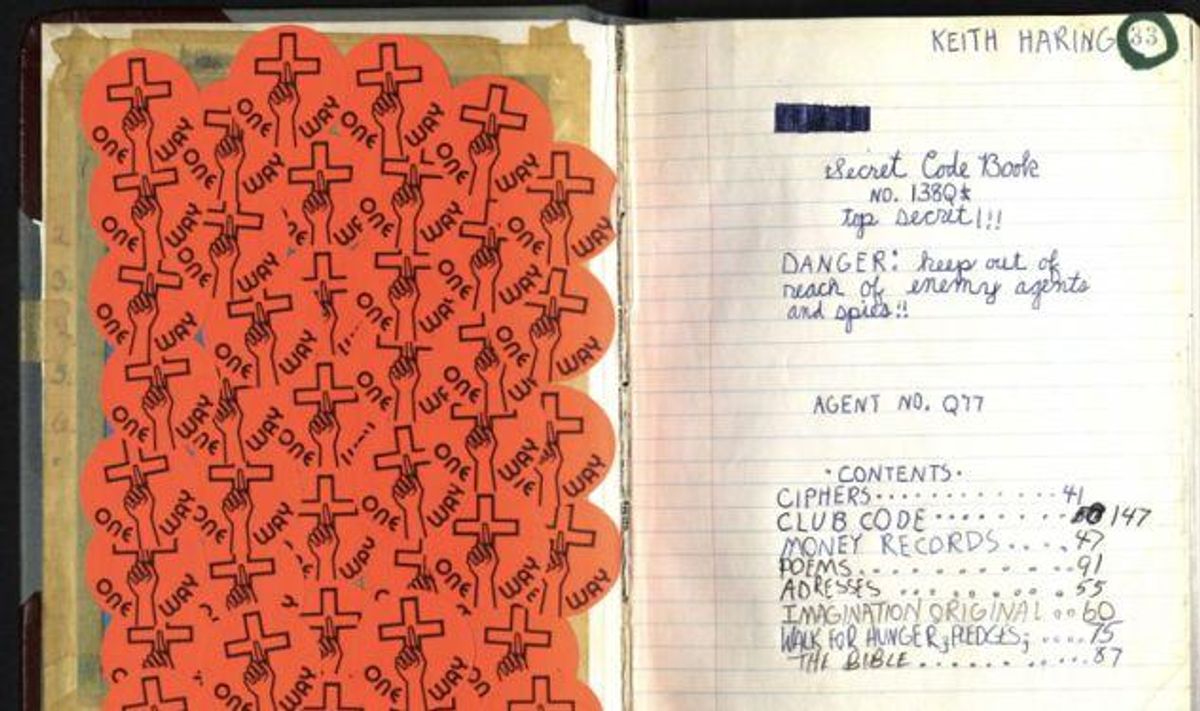 ONE WAY
KEITH HARING 33
Secret Code Book
NO. 138Q*
top secret!!!
DANGER: keep out of
reach of enemy agents
and spies!!
AGENT NO. Q77
·CONTENTS·
CIPHERS............. 41
CLUB CODE........ 147
MONEY RECORDS.... 47
POEMS............91
ADRESSES..........55
IMAGINATION ORIGINAL...60
WALK FOR HUNGER, PLEDGES, ....75
THE BIBLE...........87